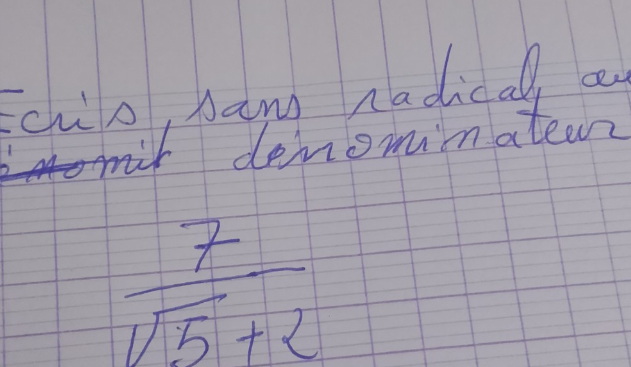 Ecris, sans radical, au
dénominateur
7
√5 + 2